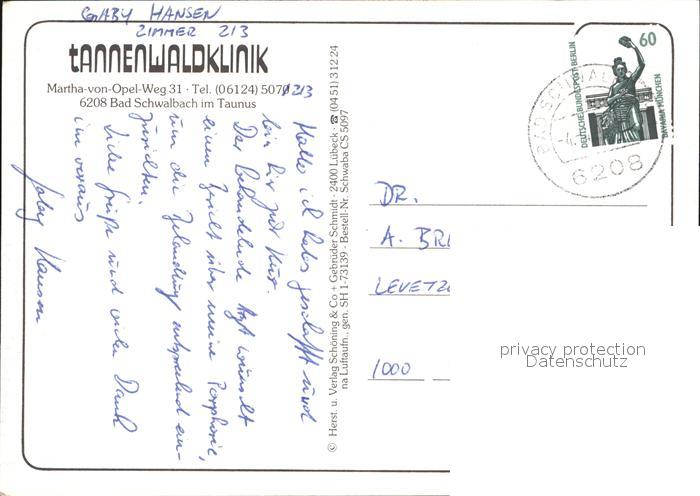 GABY HANSEN
ZIMMER 213
TANNENWALDKLINIK
Martha-von-Opel-Weg 31 · Tel. (06124) 507/213
6208 Bad Schwalbach im Taunus
Hallo ich habe geschafft und
bin hier zur Kur.
Der behandelnde Arzt wünscht
einen Bericht über meine Porphyrie,
um die Behandlung entsprechend ein-
zurichten.
Liebe Grüße und vielen Dank
im voraus
Gaby Hansen
© Herst. u. Verlag Schöning & Co + Gebrüder Schmidt · 2400 Lübeck · ☎ (0451) 31224
na Luftaufn., gen. SH 1-73139 - Bestell-Nr. Schwaba CS 5097
60
DEUTSCHE BUNDESPOST BERLIN
BAVARIA MÜNCHEN
BAD SCHWAL
6208
DR.
A. BR
LEVETZ
1000
privacy protection
Datenschutz